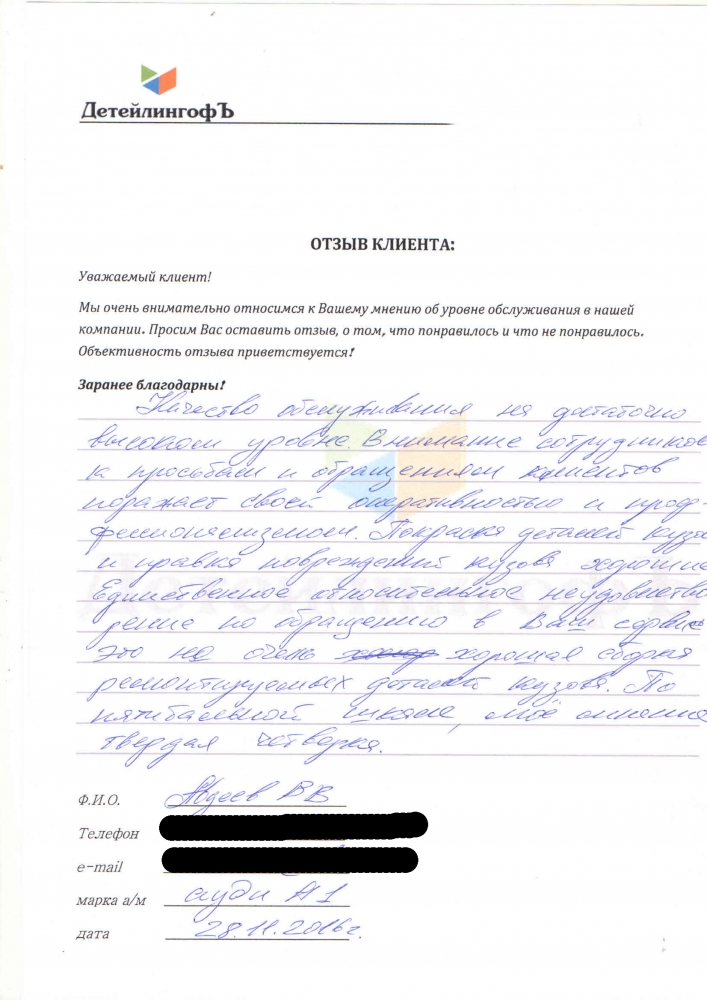 ДетейлингофЪ
ОТЗЫВ КЛИЕНТА:
Уважаемый клиент!
Мы очень внимательно относимся к Вашему мнению об уровне обслуживания в нашей
компании. Просим Вас оставить отзыв, о том, что понравилось и что не понравилось.
Объективность отзыва приветствуется!
Заранее благодарны!
Качество обслуживания на достаточно
высоком уровне. Внимание сотрудников
к просьбам и обращениям клиентов
поражает своей оперативностью и проф-
фессионализмом. Покраска деталей кузо
и правка повреждений кузова хорошие
Единственное относительное неудовлетво
рение по обращению в Ваш сервис
это не очень хорошая сборка
ремонтируемых деталей кузова. По
пятибальной шкале, моё мнение
твердая четверка.
Ф.И.О. Авдеев В В
Телефон
e-mail
марка а/м ауди А 1
дата 28.11.2016г.